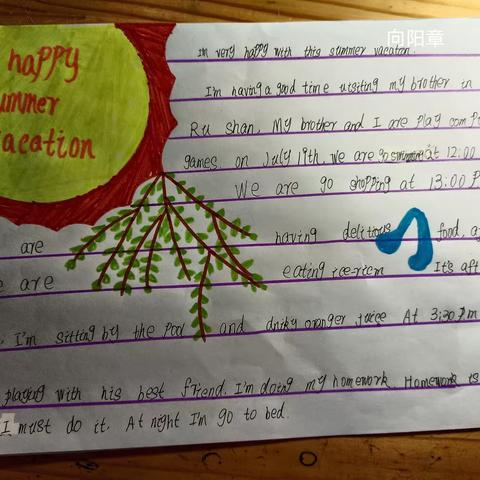 向阳章
happy
ummer
acation
Im very happy with this summer vacation.
I'm having a good time visiting my brother in
Ru shan. My brother and I are play com
games. on July 19th. we are go swimming at 12:00
We are go shopping at 13:00 P
are having delitious food, a
e are eating ice-ricem It's aft
I'm sitting by the Pool and drinky oranger juice At 3:30 Pm
playing with his best friend. I'm doing my homework Homework is
I must do it. At night I'm go to bed.